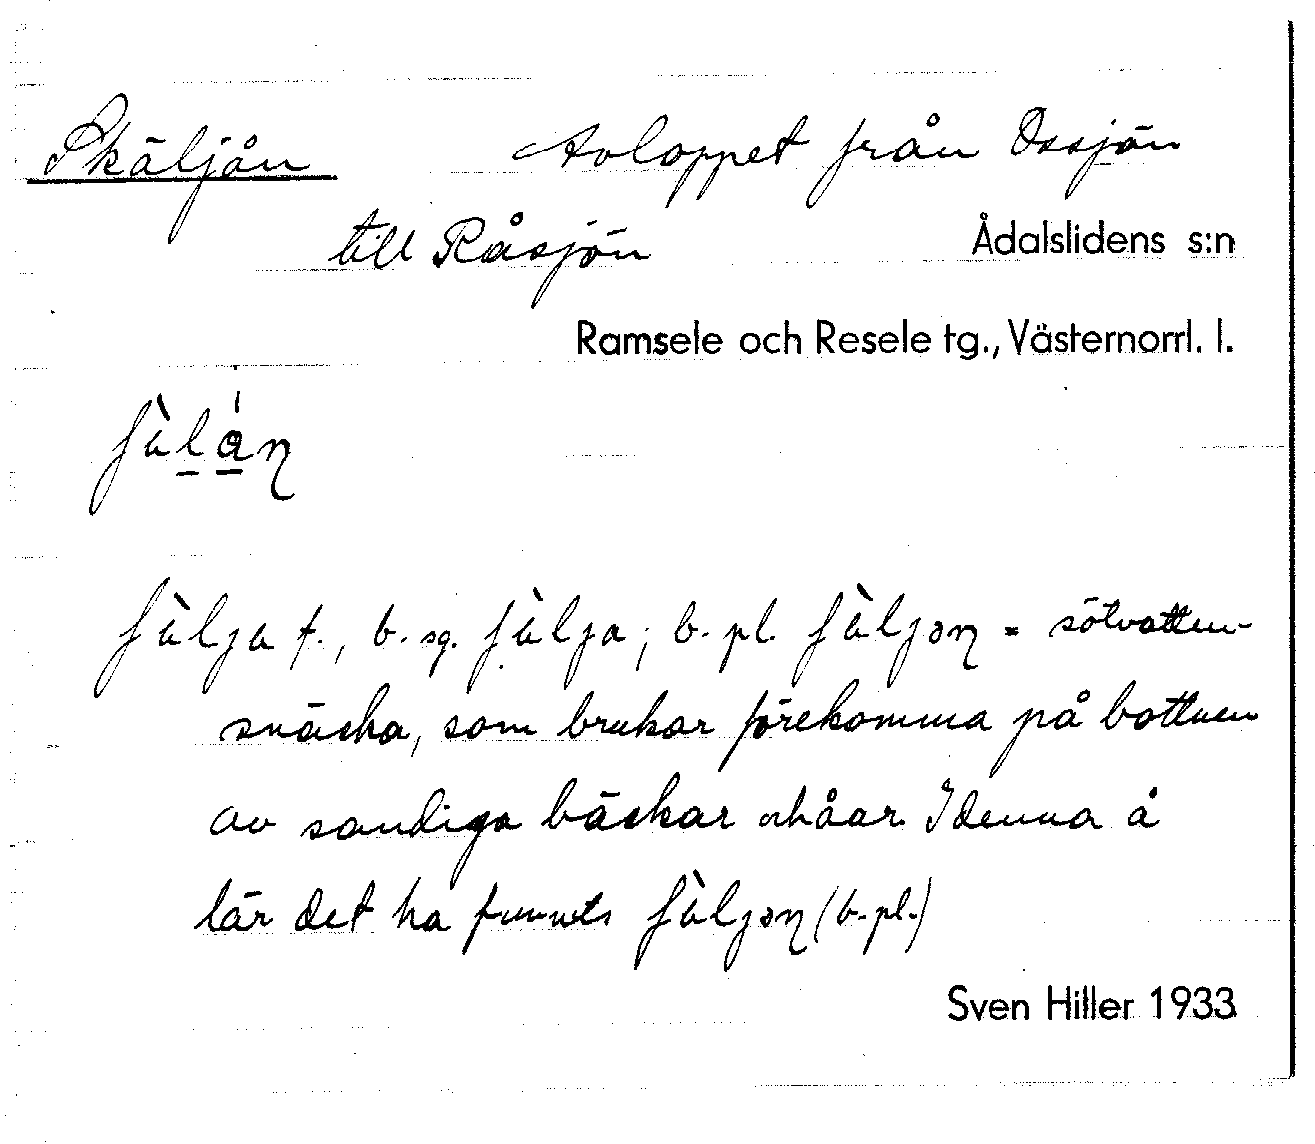 Skäljån Avloppet från Ossjön
till Råsjön Ådalslidens s:n
Ramsele och Resele tg., Västernorrl. l.
ʃὰlán
ʃὰlja f., b. sg. ʃὰlja; b. pl. ʃὰljən = sötvatten-
snäcka, som brukar förekomma på bottnen
av sandiga bäckar och åar. I denna å
lär det ha funnits ʃὰljən (b. pl.)
Sven Hiller 1933